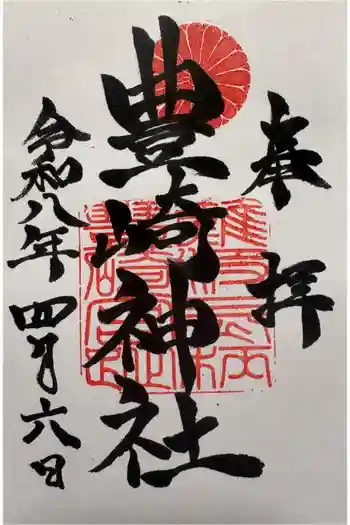 奉拝
豊崎神社
令和八年四月六日